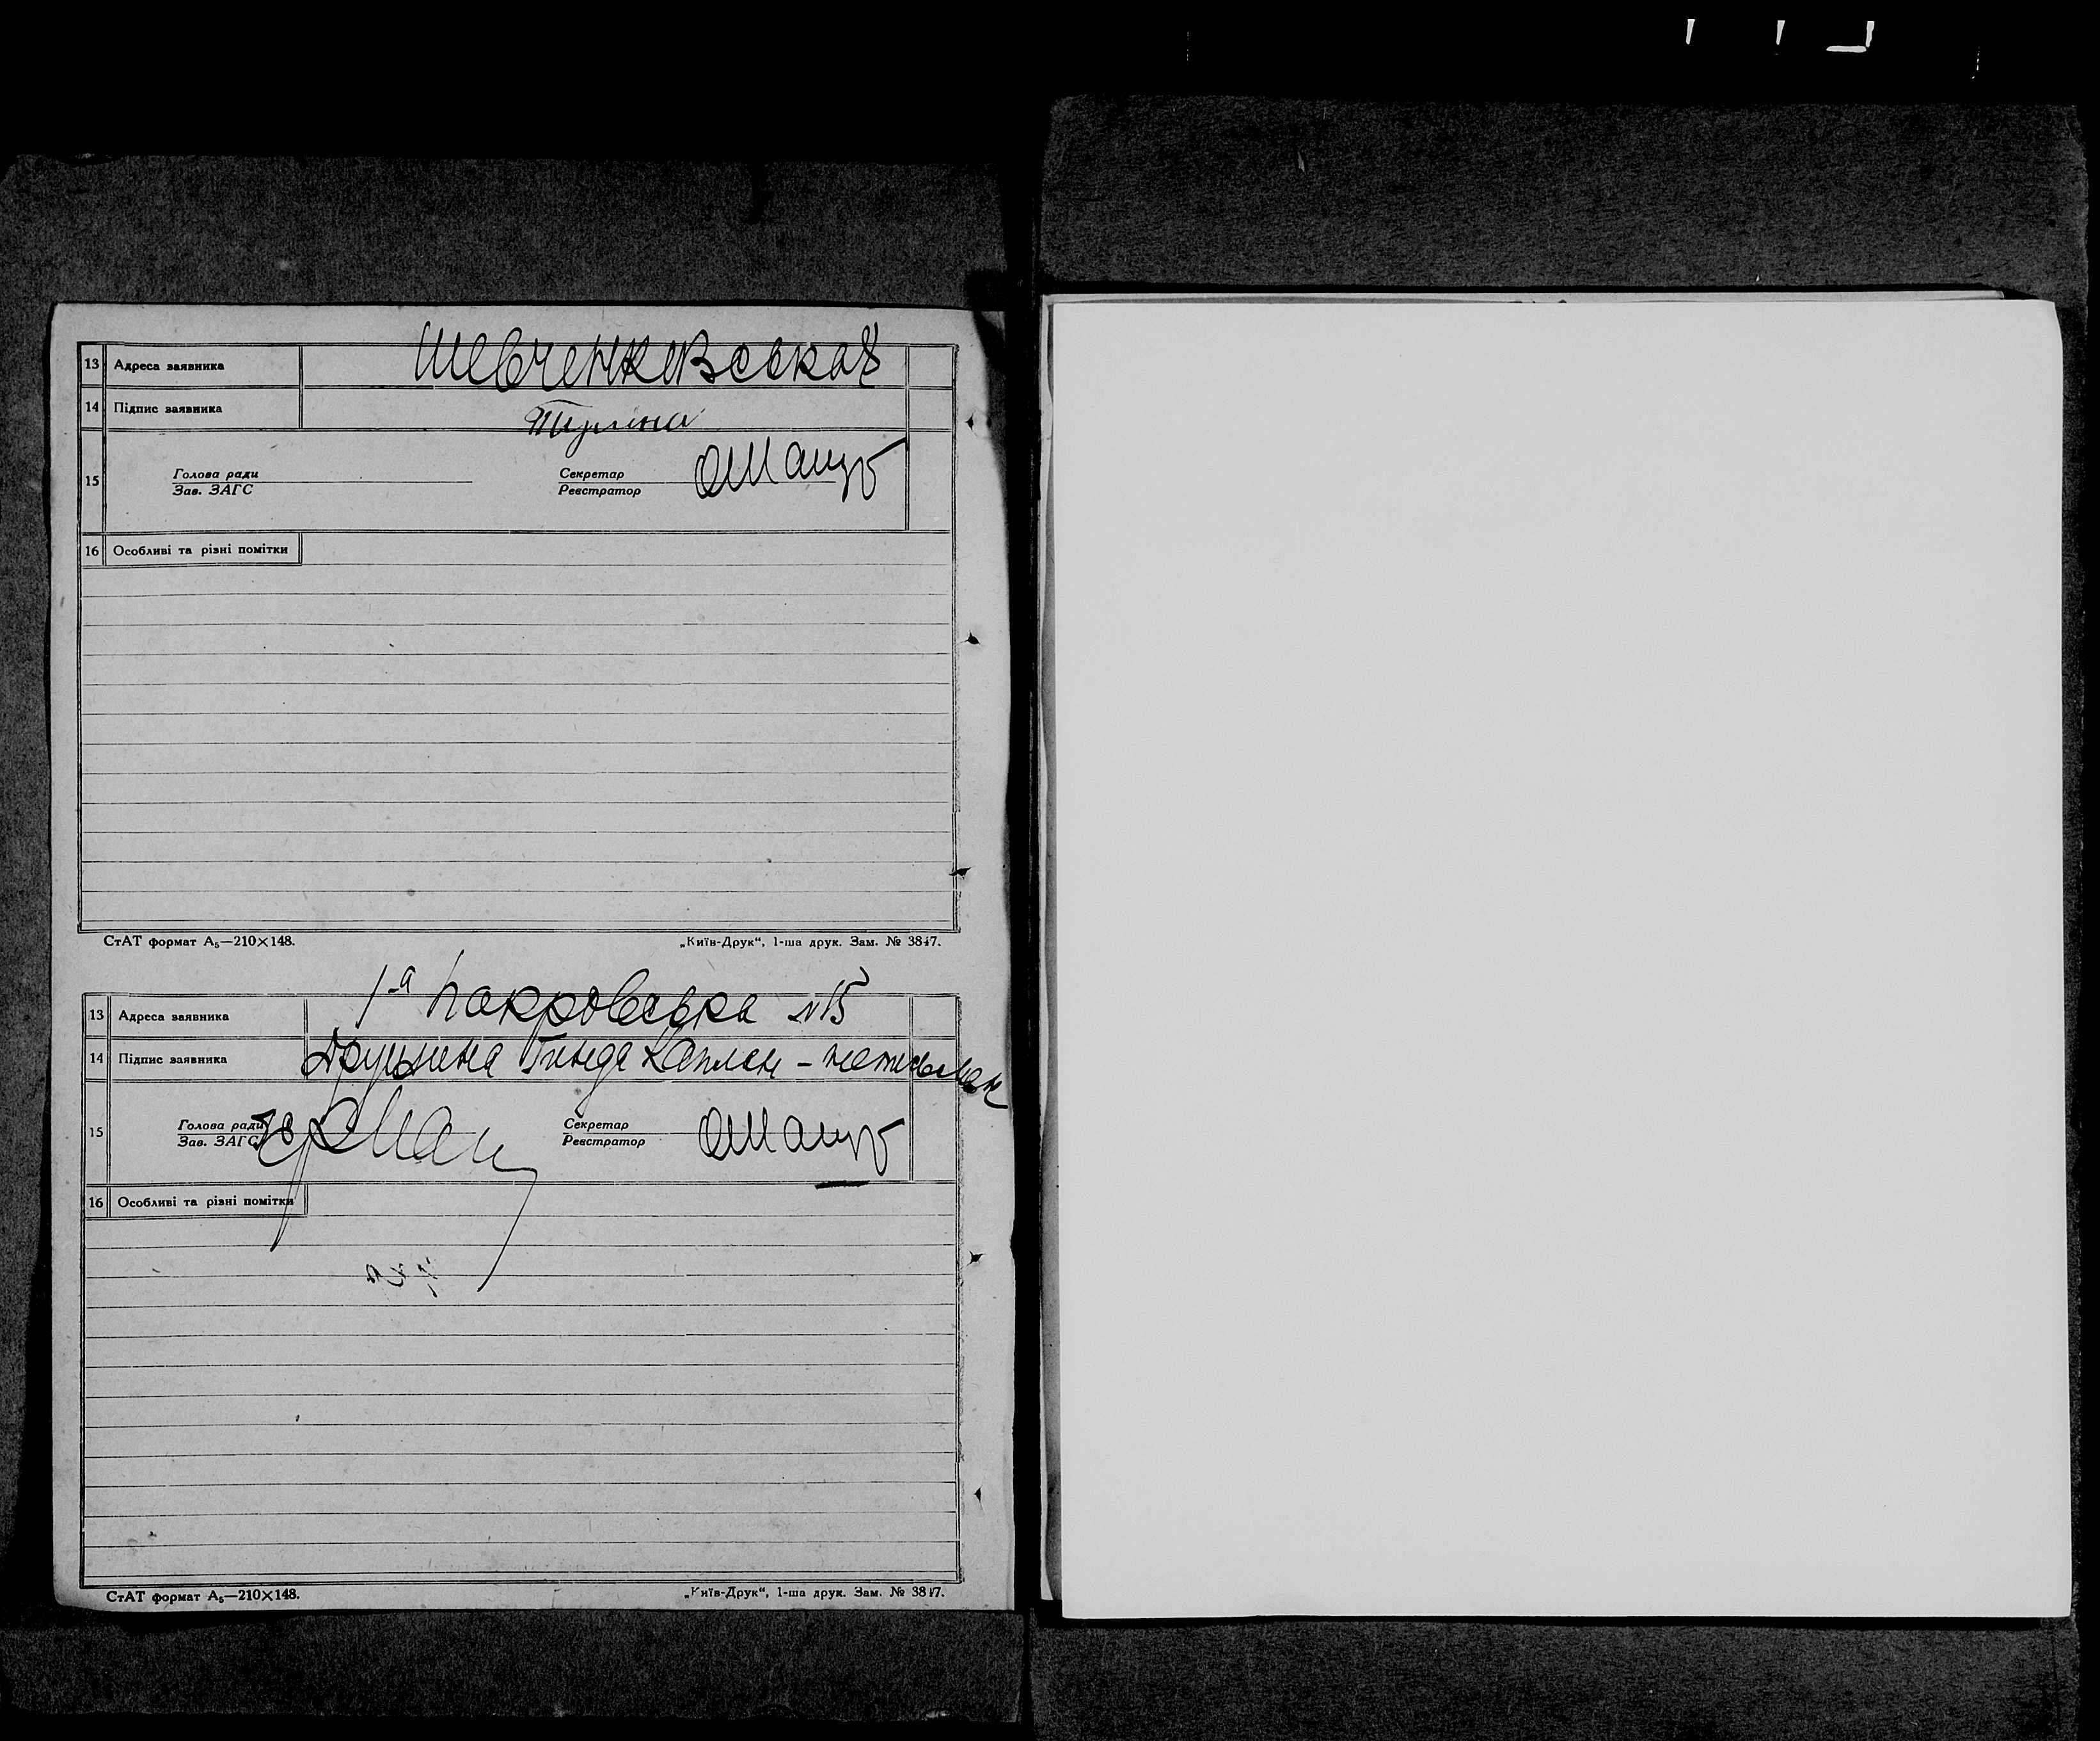 13 Адреса заявника Шевченковская
14 Підпис заявника
15 Голова ради Секретар
Зав. ЗАГС Реєстратор
16 Особливі та різні помітки
СтАТ формат А₅—210×148. „Київ-Друк“, 1-ша друк. Зам. № 3847.
13 Адреса заявника 1-а Покровська №15
14 Підпис заявника Дружина Гинда Каплан -
15 Голова ради Секретар
Зав. ЗАГС Реєстратор
16 Особливі та різні помітки
СтАТ формат А₅—210×148. „Київ-Друк“, 1-ша друк. Зам. № 3847.